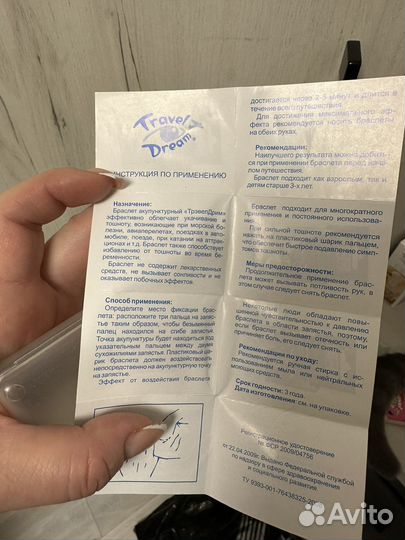 Travel
Dream
ИНСТРУКЦИЯ ПО ПРИМЕНЕНИЮ
Назначение:
Браслет акупунктурный «ТрэвелДрим»
эффективно облегчает укачивание и
тошноту, возникающие при морской бо-
лезни, авиаперелетах, поездках в авто-
мобиле, поезде, при катании на аттрак-
ционах и т.д. Браслет также способствует
избавлению от тошноты во время бе-
ременности.
Браслет не содержит лекарственных
средств, не вызывает сонливости и не
оказывает побочных эффектов.
Способ применения:
Определите место фиксации брас-
лета: расположите три пальца на запяс-
тье таким образом, чтобы безымянный
палец находился на сгибе запястья.
Точка акупунктуры будет находиться под
указательным пальцем между двумя
сухожилиями запястья. Пластиковый ша-
рик браслета должен воздействовать
непосредственно на акупунктурную точку
на запястье.
Эффект от воздействия браслета
достигается через 2-5 минут и длится в
течение всего путешествия.
Для достижения максимального эф-
фекта рекомендуется носить браслеты
на обеих руках.
Рекомендации:
Наилучшего результата можно добить-
ся при применении браслета перед нача-
лом путешествия.
Браслет подходит как взрослым, так и
детям старше 3-х лет.
Браслет подходит для многократного
применения и постоянного использова-
ния.
При сильной тошноте рекомендуется
нажать на пластиковый шарик пальцем,
что обеспечит быстрое подавление симп-
томов тошноты.
Меры предосторожности:
Продолжительное применение брас-
лета может вызывать потливость рук, в
этом случае следует снять браслет.
Некоторые люди обладают повы-
шенной чувствительностью к давлению
браслета в области запястья, поэтому,
если браслет вызывает отечность или
причиняет боль, его следует снять.
Рекомендации по уходу:
Рекомендуется ручная стирка с ис-
пользованием мыла или нейтральных
моющих средств.
Срок годности: 3 года.
Дата изготовления: см. на упаковке.
Регистрационное удостоверение
№ ФСР 2009/04756
от 22.04.2009г. Выдано Федеральной службой
по надзору в сфере здравоохранения
и социального развития.
ТУ 9393-001-76438325-
Avito